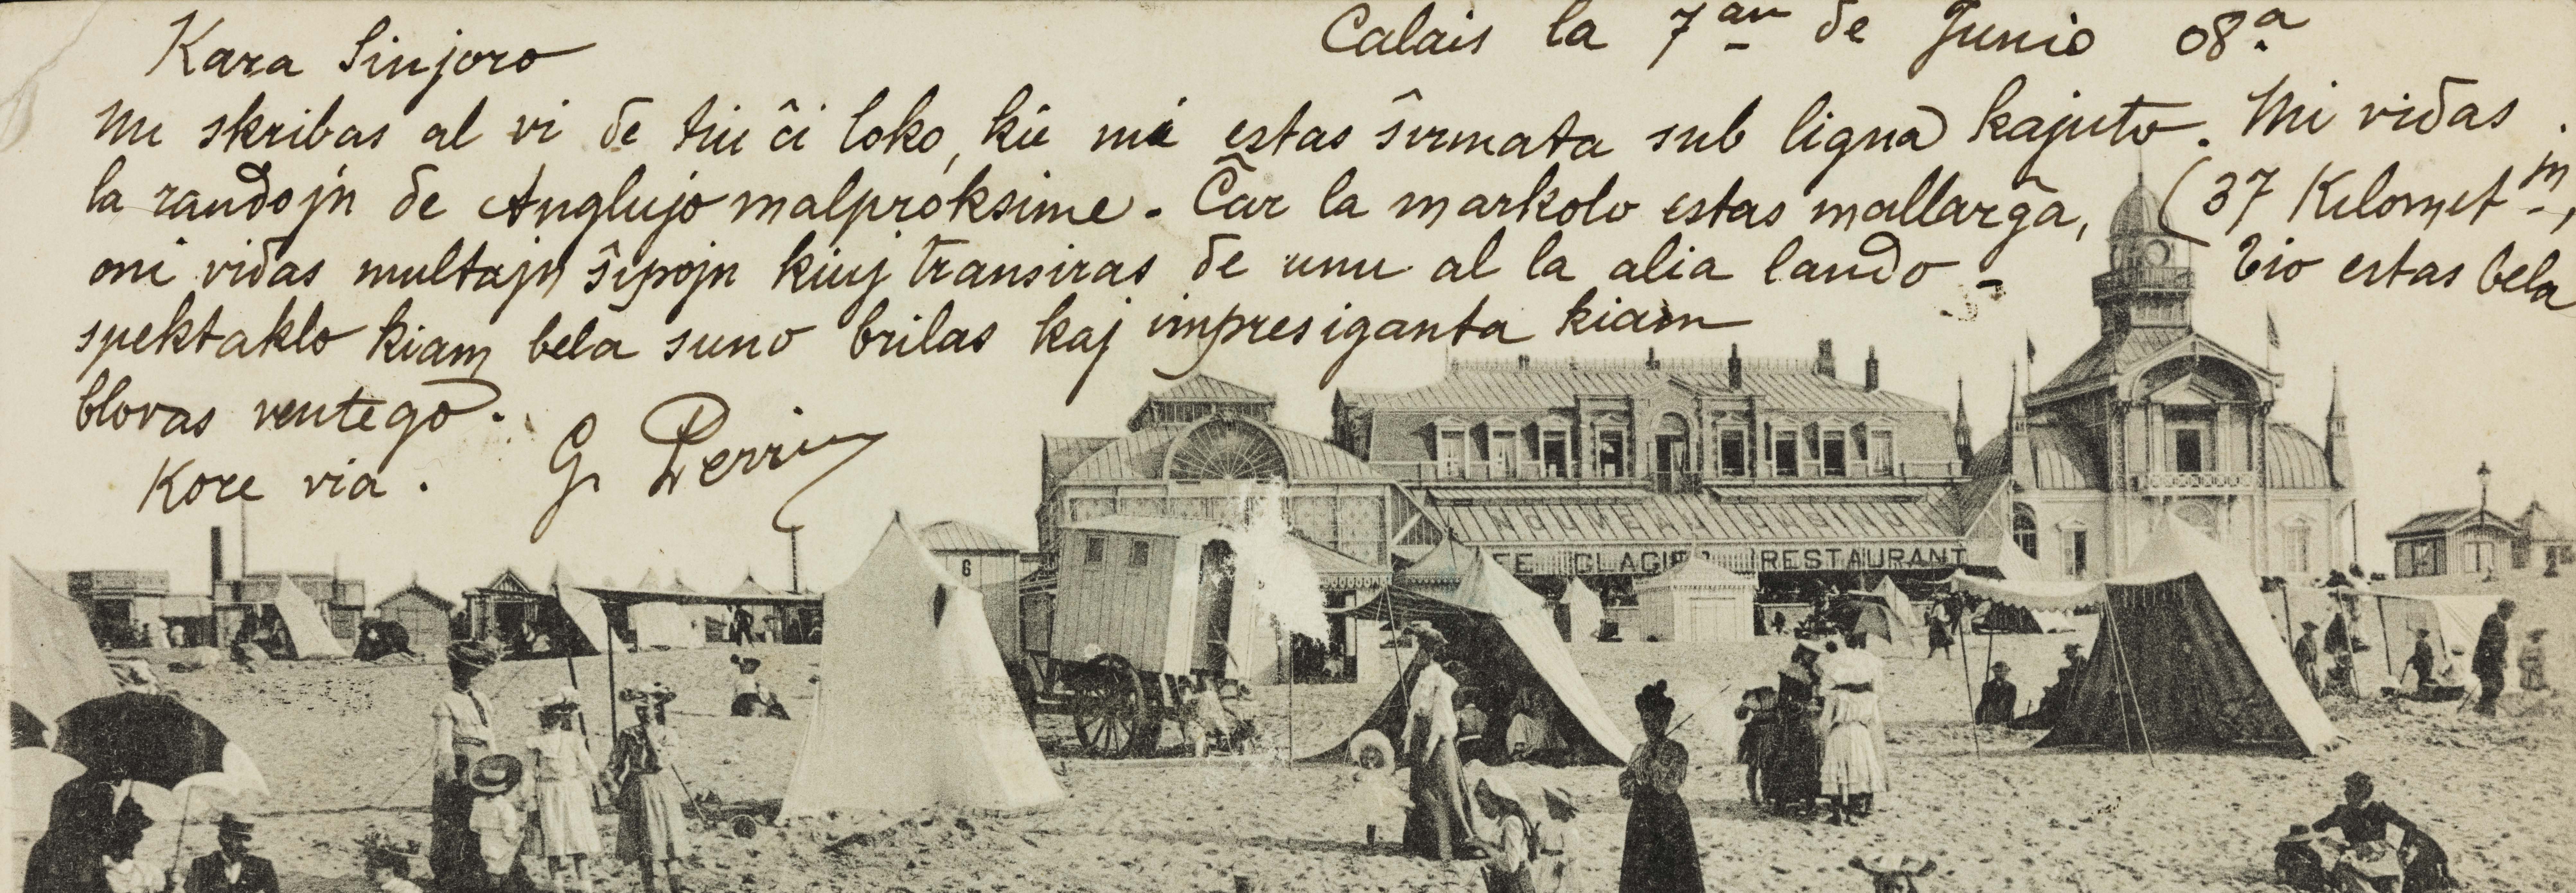 Kara Sinjoro
Calais la 7an de Junio 08a
Mi skribas al vi de tiu ĉi loko, kie mi estas ŝirmata sub ligna kajuto. Mi vidas
la randojn de Anglujo malproksime. Ĉar la markolo estas mallarĝa, (37 Kilomet m,
oni vidas multajn ŝipojn kiuj transiras de unu al la alia lando - Tio estas bela
spektaklo kiam bela suno brilas kaj impresiganta kiam
blovas ventego.
Kore via. G. Perrin
NOUVEAU CASINO
GLACIER RESTAURANT
6